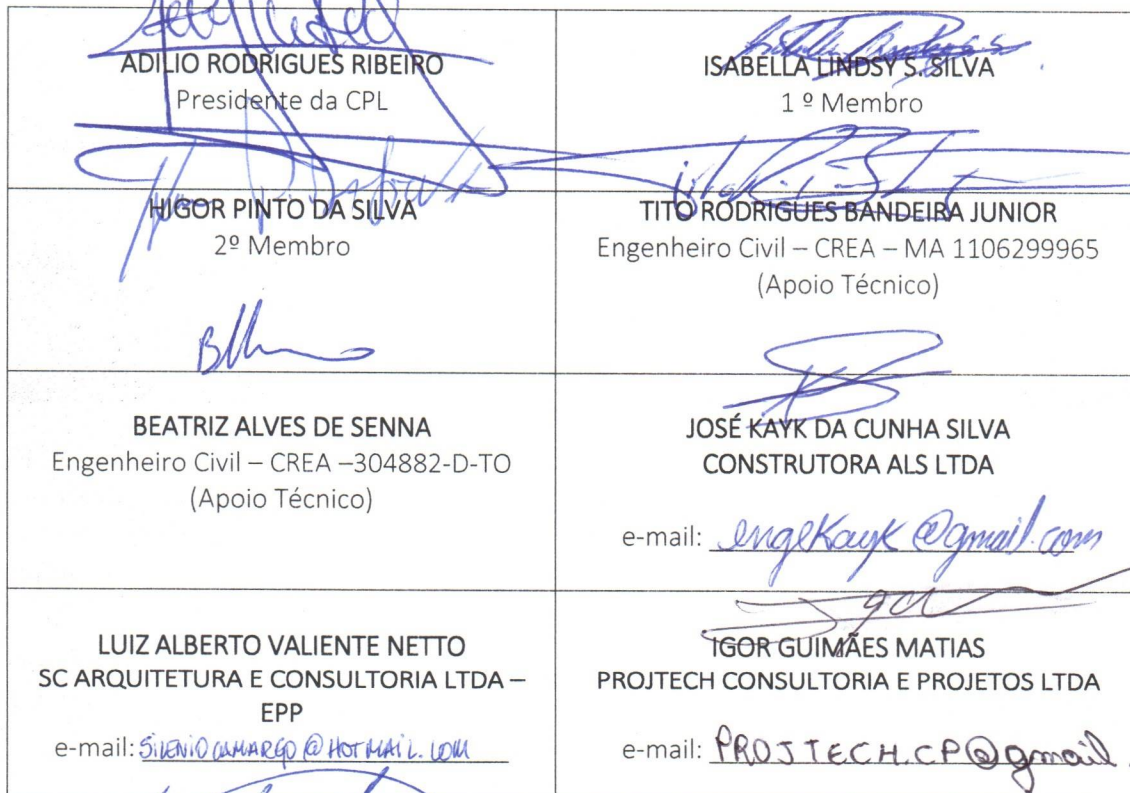 ADILIO RODRIGUES RIBEIRO
Presidente da CPL
ISABELLA LINDSY S. SILVA
1 º Membro
HIGOR PINTO DA SILVA
2º Membro
TITO RODRIGUES BANDEIRA JUNIOR
Engenheiro Civil – CREA – MA 1106299965
(Apoio Técnico)
BEATRIZ ALVES DE SENNA
Engenheiro Civil – CREA –304882-D-TO
(Apoio Técnico)
JOSÉ KAYK DA CUNHA SILVA
CONSTRUTORA ALS LTDA
e-mail: engekayk@gmail.com
LUIZ ALBERTO VALIENTE NETTO
SC ARQUITETURA E CONSULTORIA LTDA –
EPP
e-mail: SILENIOCAMARGO@HOTMAIL.COM
IGOR GUIMÃES MATIAS
PROJTECH CONSULTORIA E PROJETOS LTDA
e-mail: PROJTECH.CP@gmail.